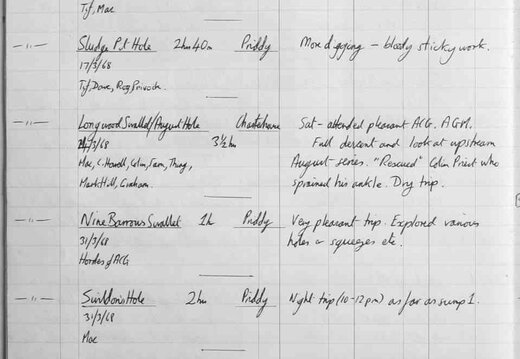 Tif, Mac
—"— Sludge Pit Hole 2hr 40m Priddy More digging – bloody sticky work.
17/3/68
Tif, Dave, Rog,
—"— Longwood Swallet/August Hole Charterhouse Sat – attended pleasant ACG. AGM.
/3/68 3½ hr Full descent and look at upstream
Mac, C. Howell, Colin, Sam, Thag, August series. "Rescued" Colin Priest who
Mark Hill, Graham. sprained his ankle. Dry trip.
—"— Nine Barrows Swallet 1h Priddy Very pleasant trip. Explored various
31/3/68 holes & squeezes etc.
Hordes of ACG
—"— Swildons Hole 2hrs Priddy Night trip (10-12pm) as far as sump 1.
31/3/68
Mac